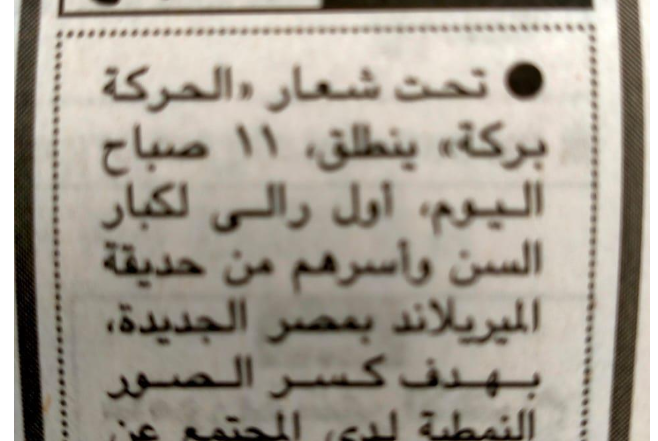 ● تحت شعار «الحركة
بركة» ينطلق، ١١ صباح
اليوم، أول رالى لكبار
السن وأسرهم من حديقة
الميريلاند بمصر الجديدة،
بهدف كسر الصور
النمطية لدى المجتمع عن